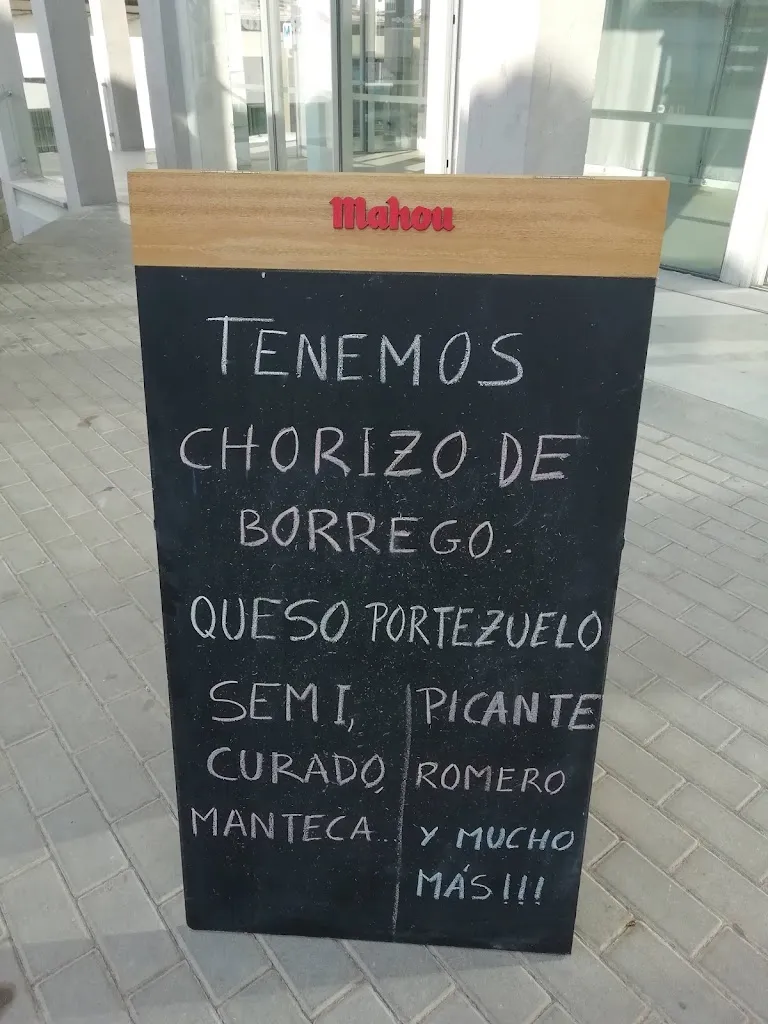 Mahou
TENEMOS
CHORIZO DE
BORREGO.
QUESO PORTEZUELO
SEMI,
CURADO,
MANTECA...
PICANTE
ROMERO
Y MUCHO
MÁS!!!